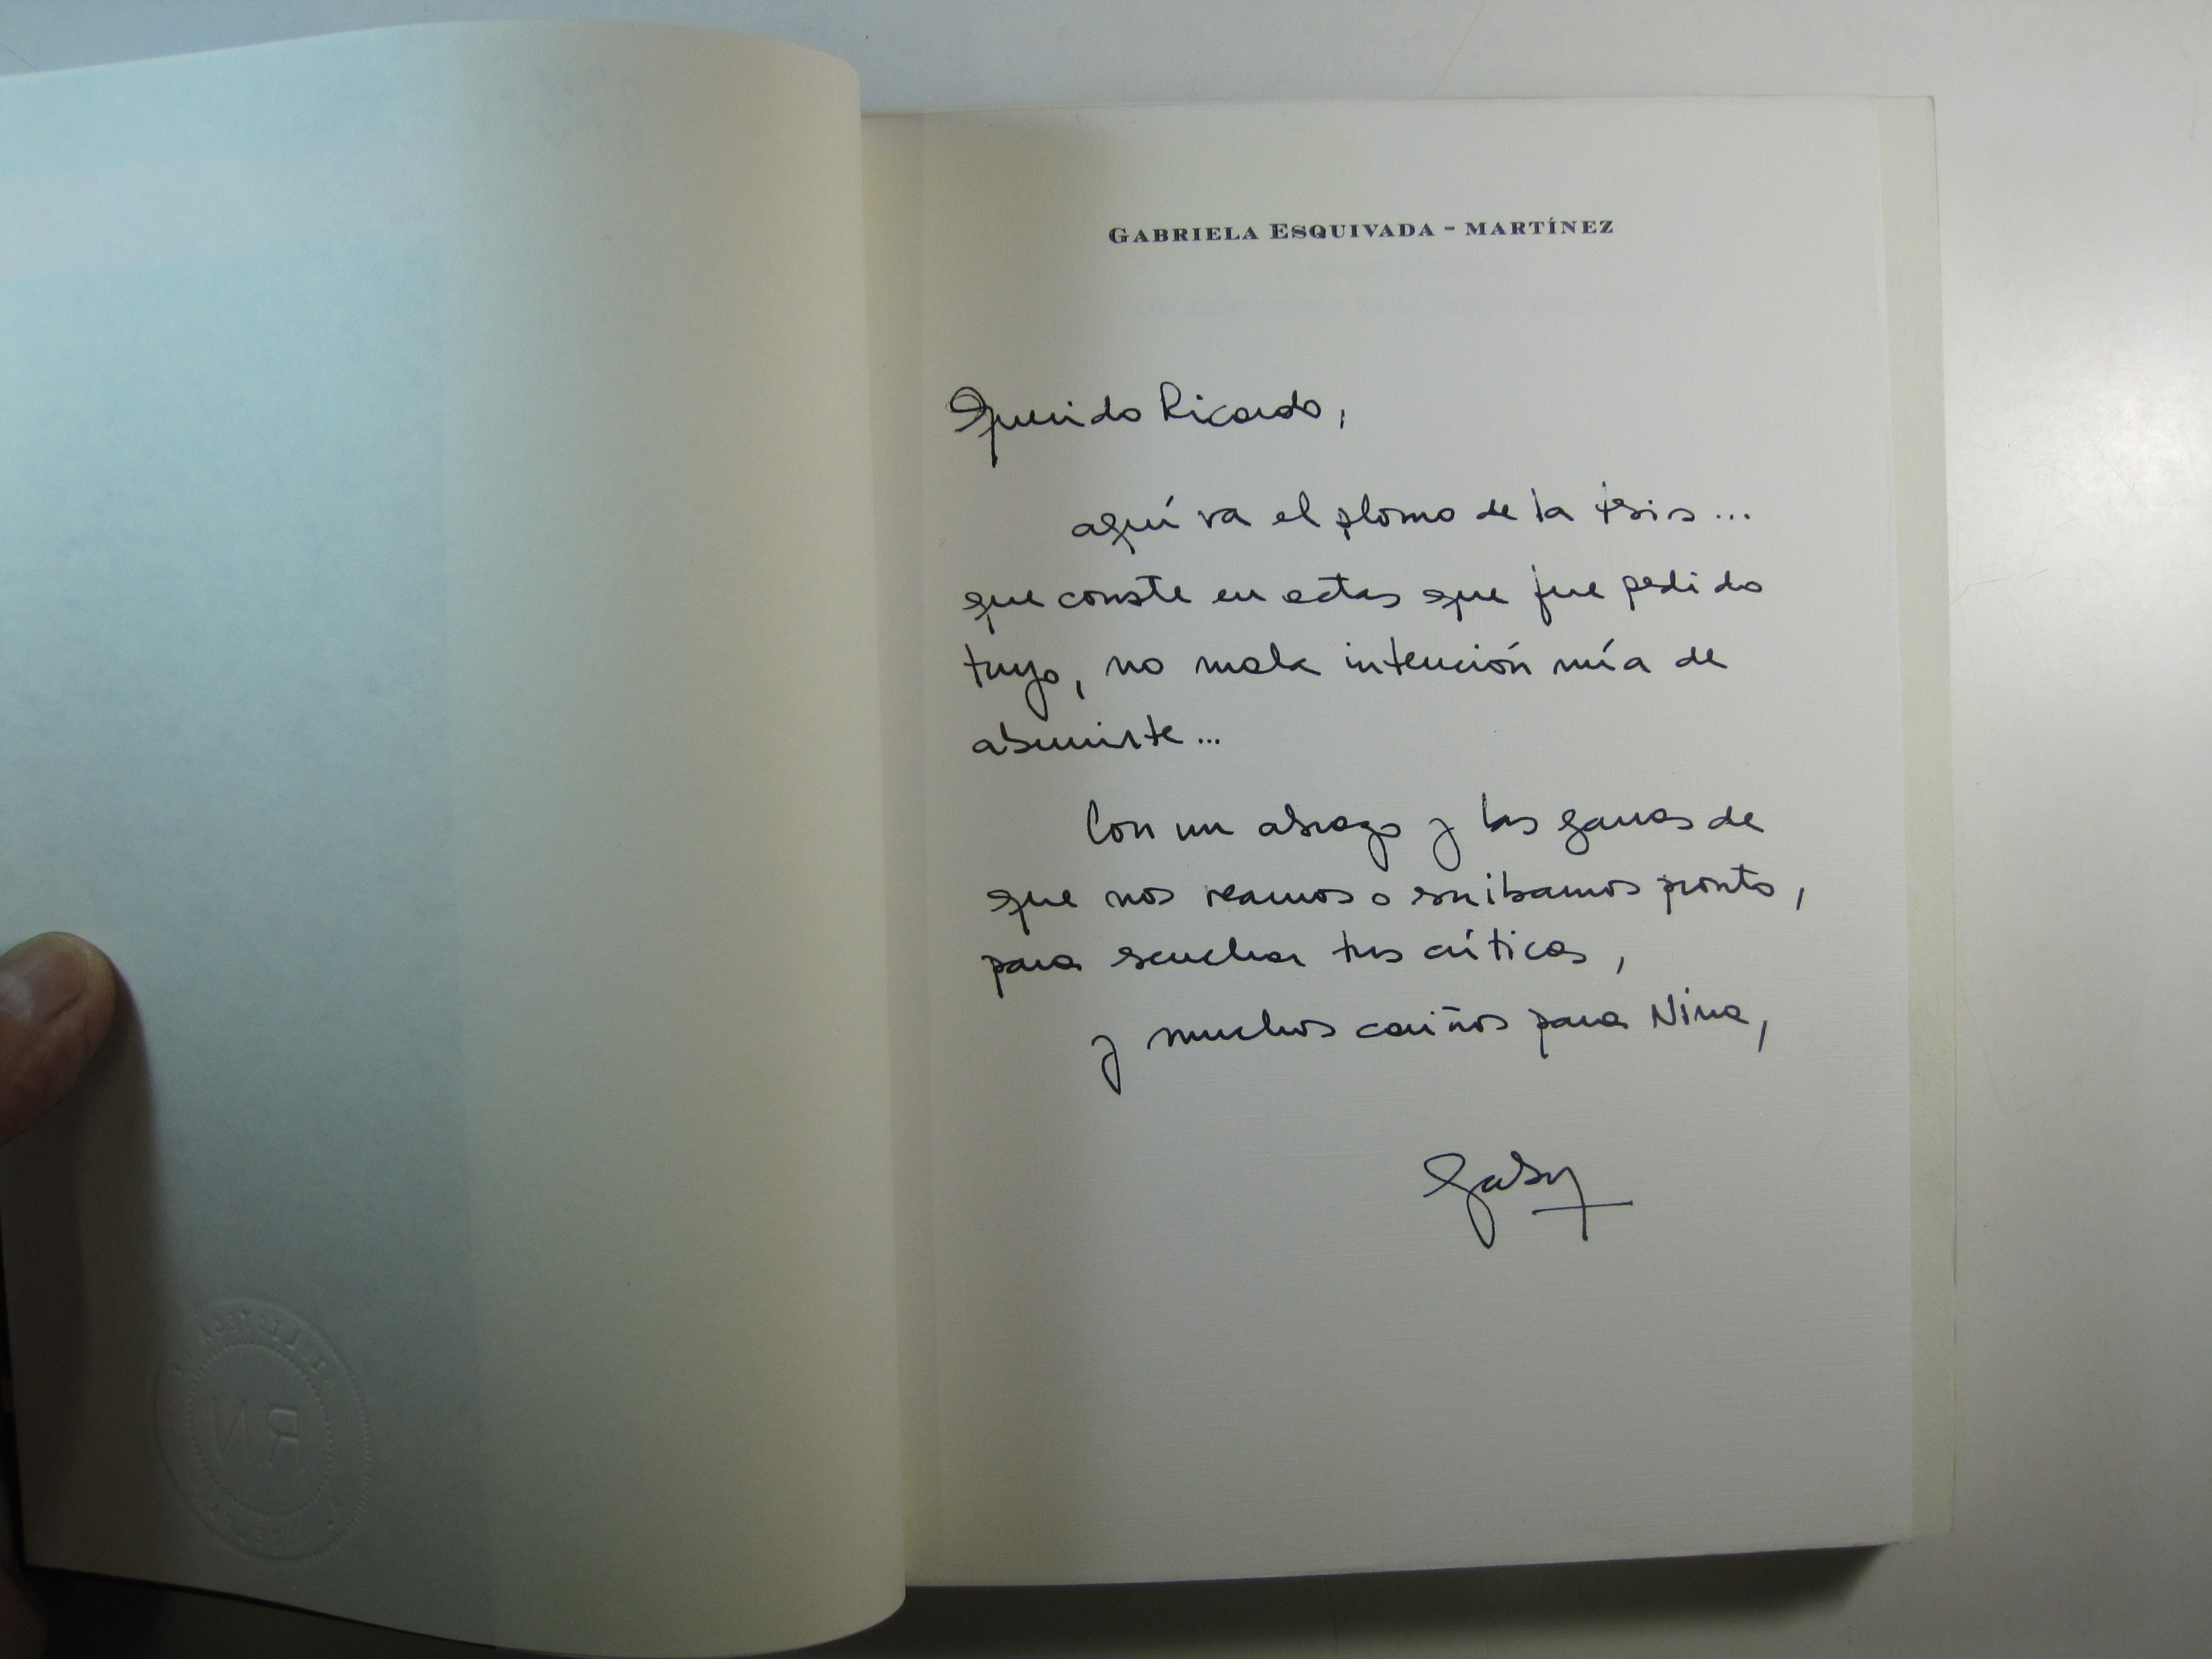 GABRIELA ESQUIVADA - MARTÍNEZ
Querido Ricardo,
aquí va el plomo de la tesis...
que conste en actas que fue pedido
tuyo, no mala intención mía de
aburrirte...
Con un abrazo y las ganas de
que nos veamos o escribamos pronto,
para escuchar tus críticas,
y muchos cariños para Nina,
Gaby
RN